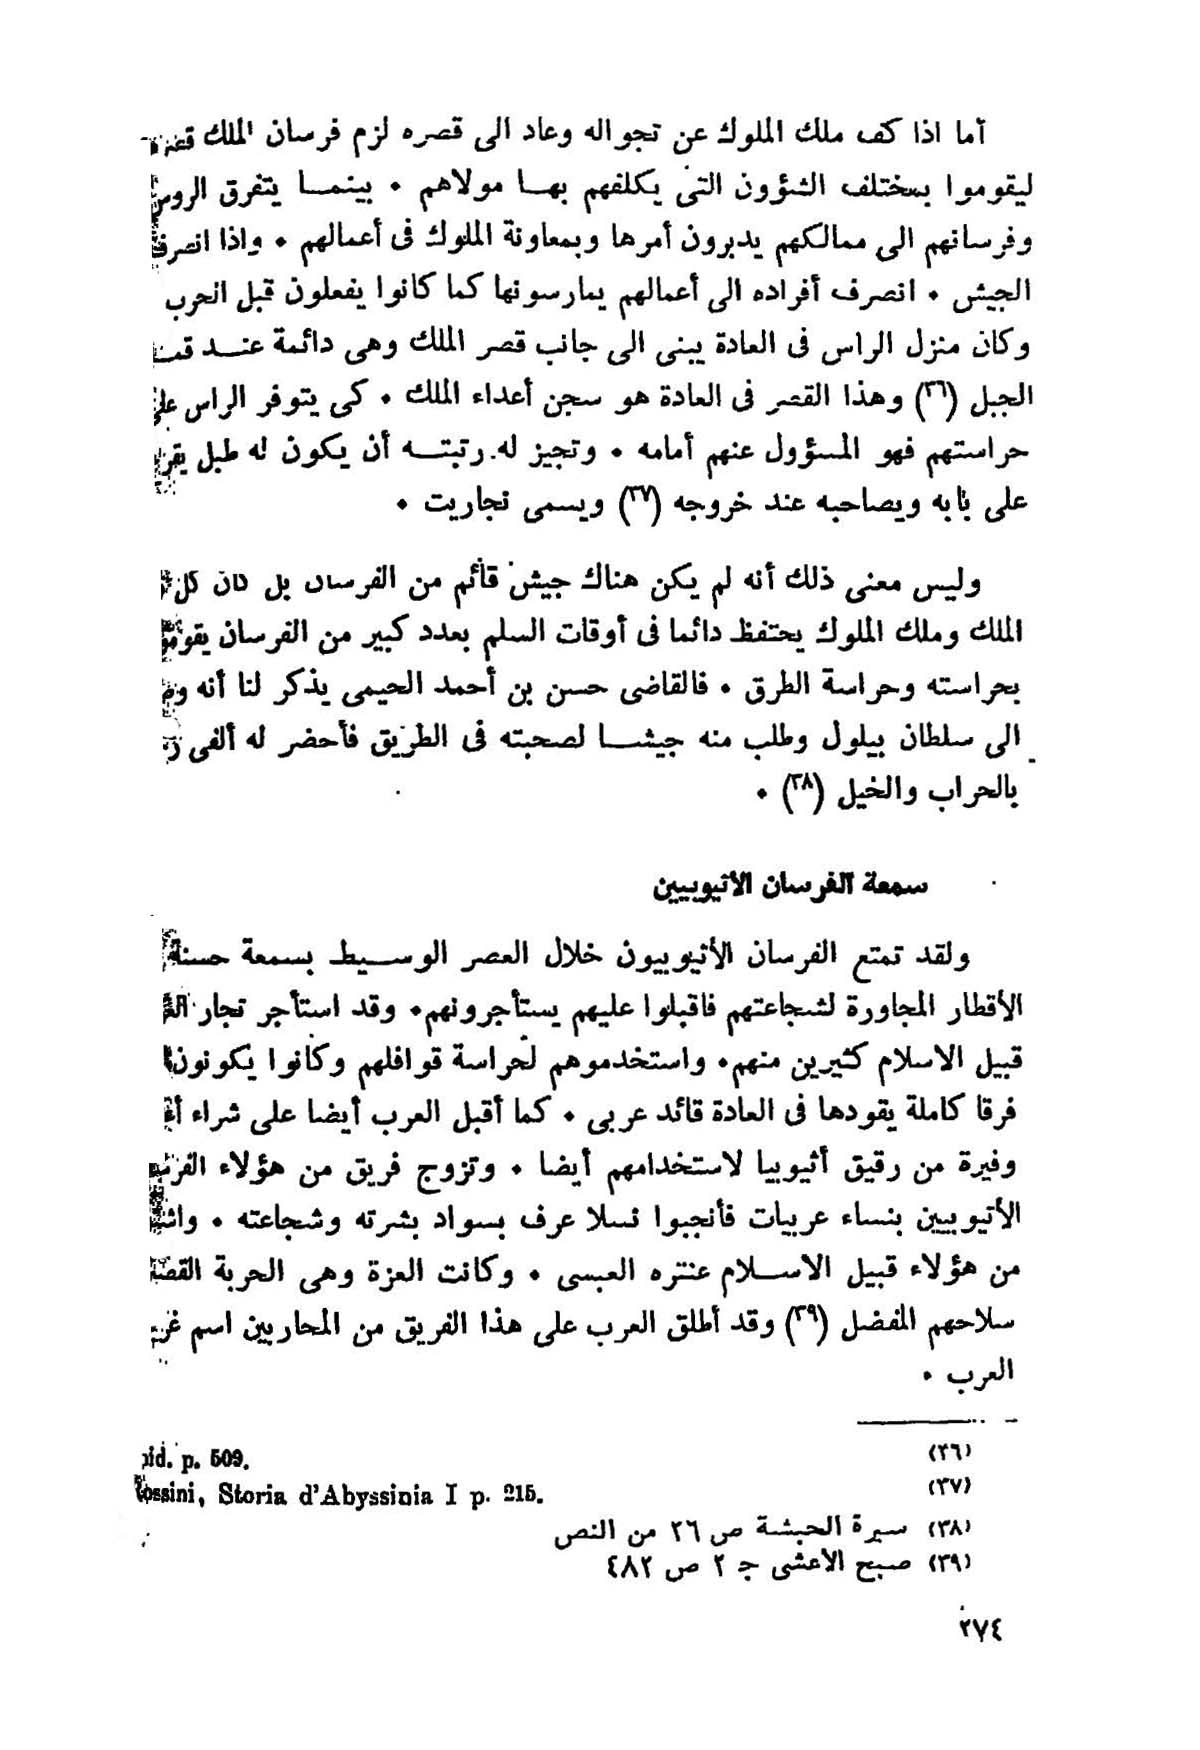 أما اذا كف ملك الملوك عن تجواله وعاد الى قصره لزم فرسان الملك
ليقوموا بمختلف الشؤون التى يكلفهم بهـا مولاهم • بينمـا يتفرق
وفرسانهم الى ممالكهم يدبرون أمرها وبمعاونة الملوك فى أعمالهم • واذا انصرف
الجيش • انصرف أفراده الى أعمالهم يمارسونها كما كانوا يفعلون قبل الحرب
وكان منزل الراس فى العادة يبنى الى جانب قصر الملك وهى دائمة عنـد
الجبل (٣٦) وهذا القصر فى العادة هو سجن أعداء الملك • كى يتوفر الراس على
حراستهم فهو المسؤول عنهم أمامه • وتجيز له رتبتـه أن يكون له طبل
على بابه ويصاحبه عند خروجه (٣٧) ويسمى نجاريت •
وليس معنى ذلك أنه لم يكن هناك جيش قائم من الفرسان بل كان كل
الملك وملك الملوك يحتفظ دائما فى أوقات السلم بعدد كبير من الفرسان
بحراسته وحراسة الطرق • فالقاضى حسن بن أحمد الحيمى يذكر لنا أنه
الى سلطان بيلول وطلب منه جيشـا لصحبته فى الطريق فأحضر له ألفى
بالحراب والخيل (٣٨) •
سمعة الفرسان الأثيوبيين
ولقد تمتع الفرسان الأثيوبيون خلال العصر الوسـيط بسمعة حسنة
الأقطار المجاورة لشجاعتهم فاقبلوا عليهم يستأجرونهم• وقد استأجر تجار
قبيل الاسلام كثيرين منهم• واستخدموهم لحراسة قوافلهم وكانوا يكونون
فرقا كاملة يقودها فى العادة قائد عربى • كما أقبل العرب أيضا على شراء
وفيرة من رقيق أثيوبيا لاستخدامهم أيضا • وتزوج فريق من هؤلاء
الأثيوبيين بنساء عربيات فأنجبوا نسلا عرف بسواد بشرته وشجاعته •
من هؤلاء قبيل الاسـلام عنتره العبسى • وكانت العزة وهى الحربة
سلاحهم المفضل (٣٩) وقد أطلق العرب على هذا الفريق من المحاربين اسم
العرب •
(٣٦) p. 509.
(٣٧) Storia d'Abyssinia I p. 215.
(٣٨) سيرة الحبشة ص ٢٦ من النص
(٣٩) صبح الأعشى ج ٢ ص ٤٨٢
٢٧٤